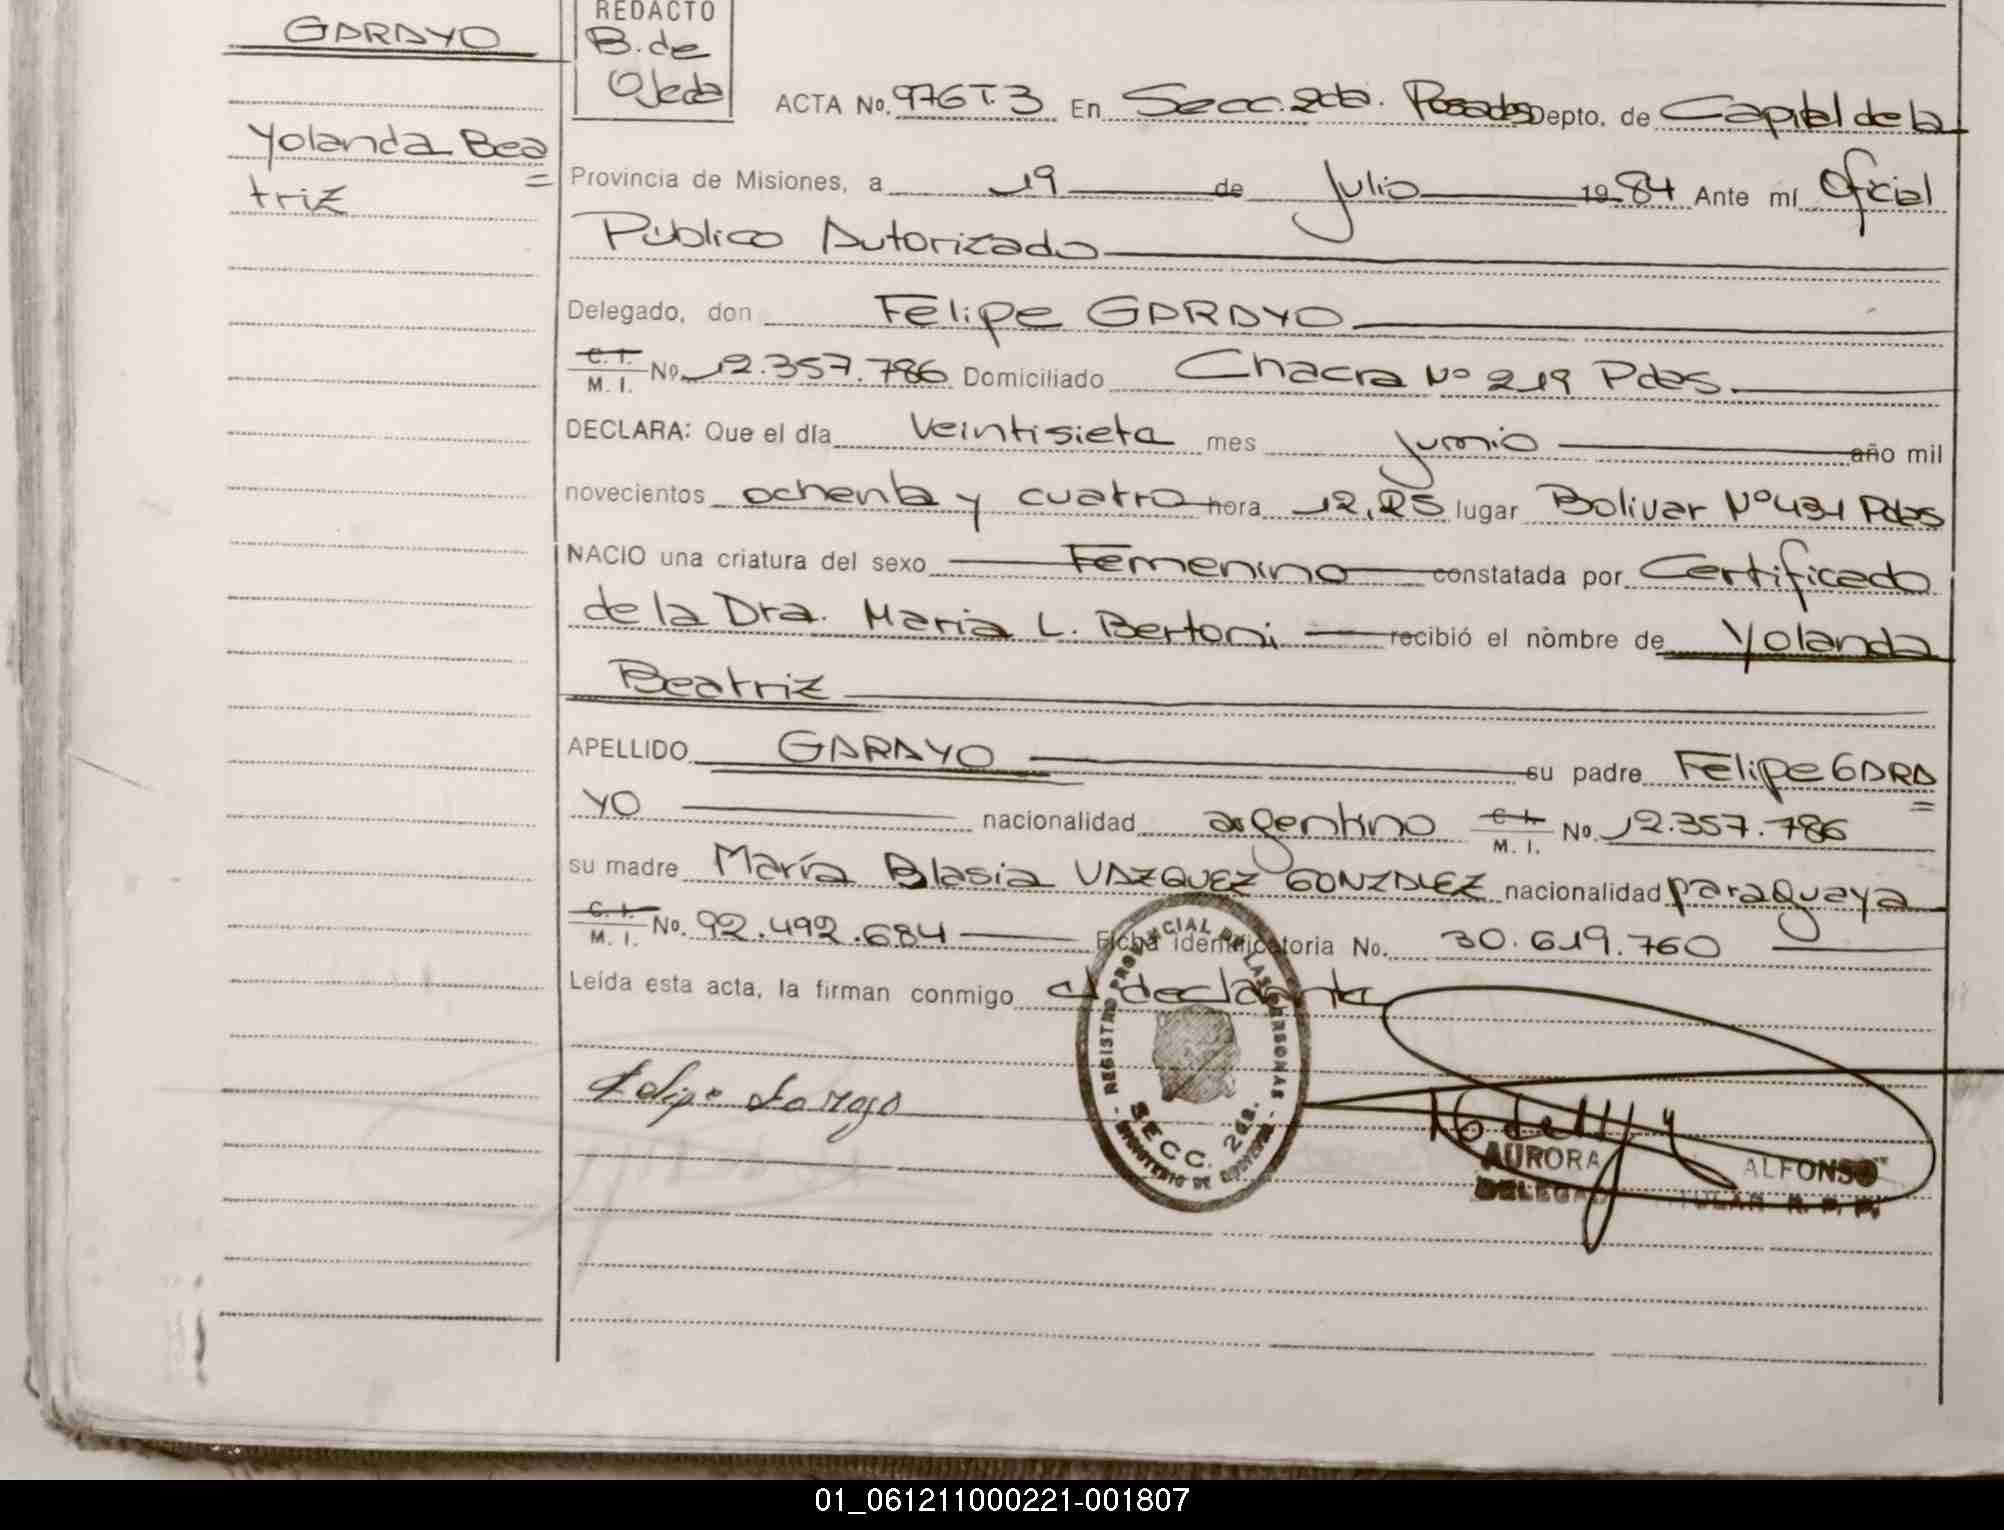 GARAYO
Yolanda Bea=
triz
REDACTO
B. de
Ojeda
ACTA No. 976 T. 3 En Secc. 2da. Posadas Depto. de Capital de la
Provincia de Misiones, a 19 de Julio 1984 Ante mí Oficial
Público Autorizado
Delegado, don Felipe GARAYO
C. I. M. I. No. 12.357.786 Domiciliado Chacra Nº 219 Pdas.
DECLARA: Que el día veintisiete mes junio año mil
novecientos ochenta y cuatro hora 12,25 lugar Bolivar Nº 431 Pdas
NACIO una criatura del sexo Femenino constatada por Certificado
de la Dra. Maria L. Bertoni recibió el nombre de Yolanda
Beatriz
APELLIDO GARAYO su padre Felipe GARA=
YO nacionalidad argentino C. I. M. I. No. 12.357.786
su madre María Blasia VAZQUEZ GONZALEZ nacionalidad paraguaya
C. I. M. I. No. 92.492.684 Ficha identificatoria No. 30.619.760
Leída esta acta, la firman conmigo el declarante
Felipe Garayo
REGISTRO PROVINCIAL DE LAS PERSONAS
SECC. 2da.
MINISTERIO DE GOBIERNO
AURORA ALFONSO
DELEGAD TITULAR R. P. P.
01_061211000221-001807